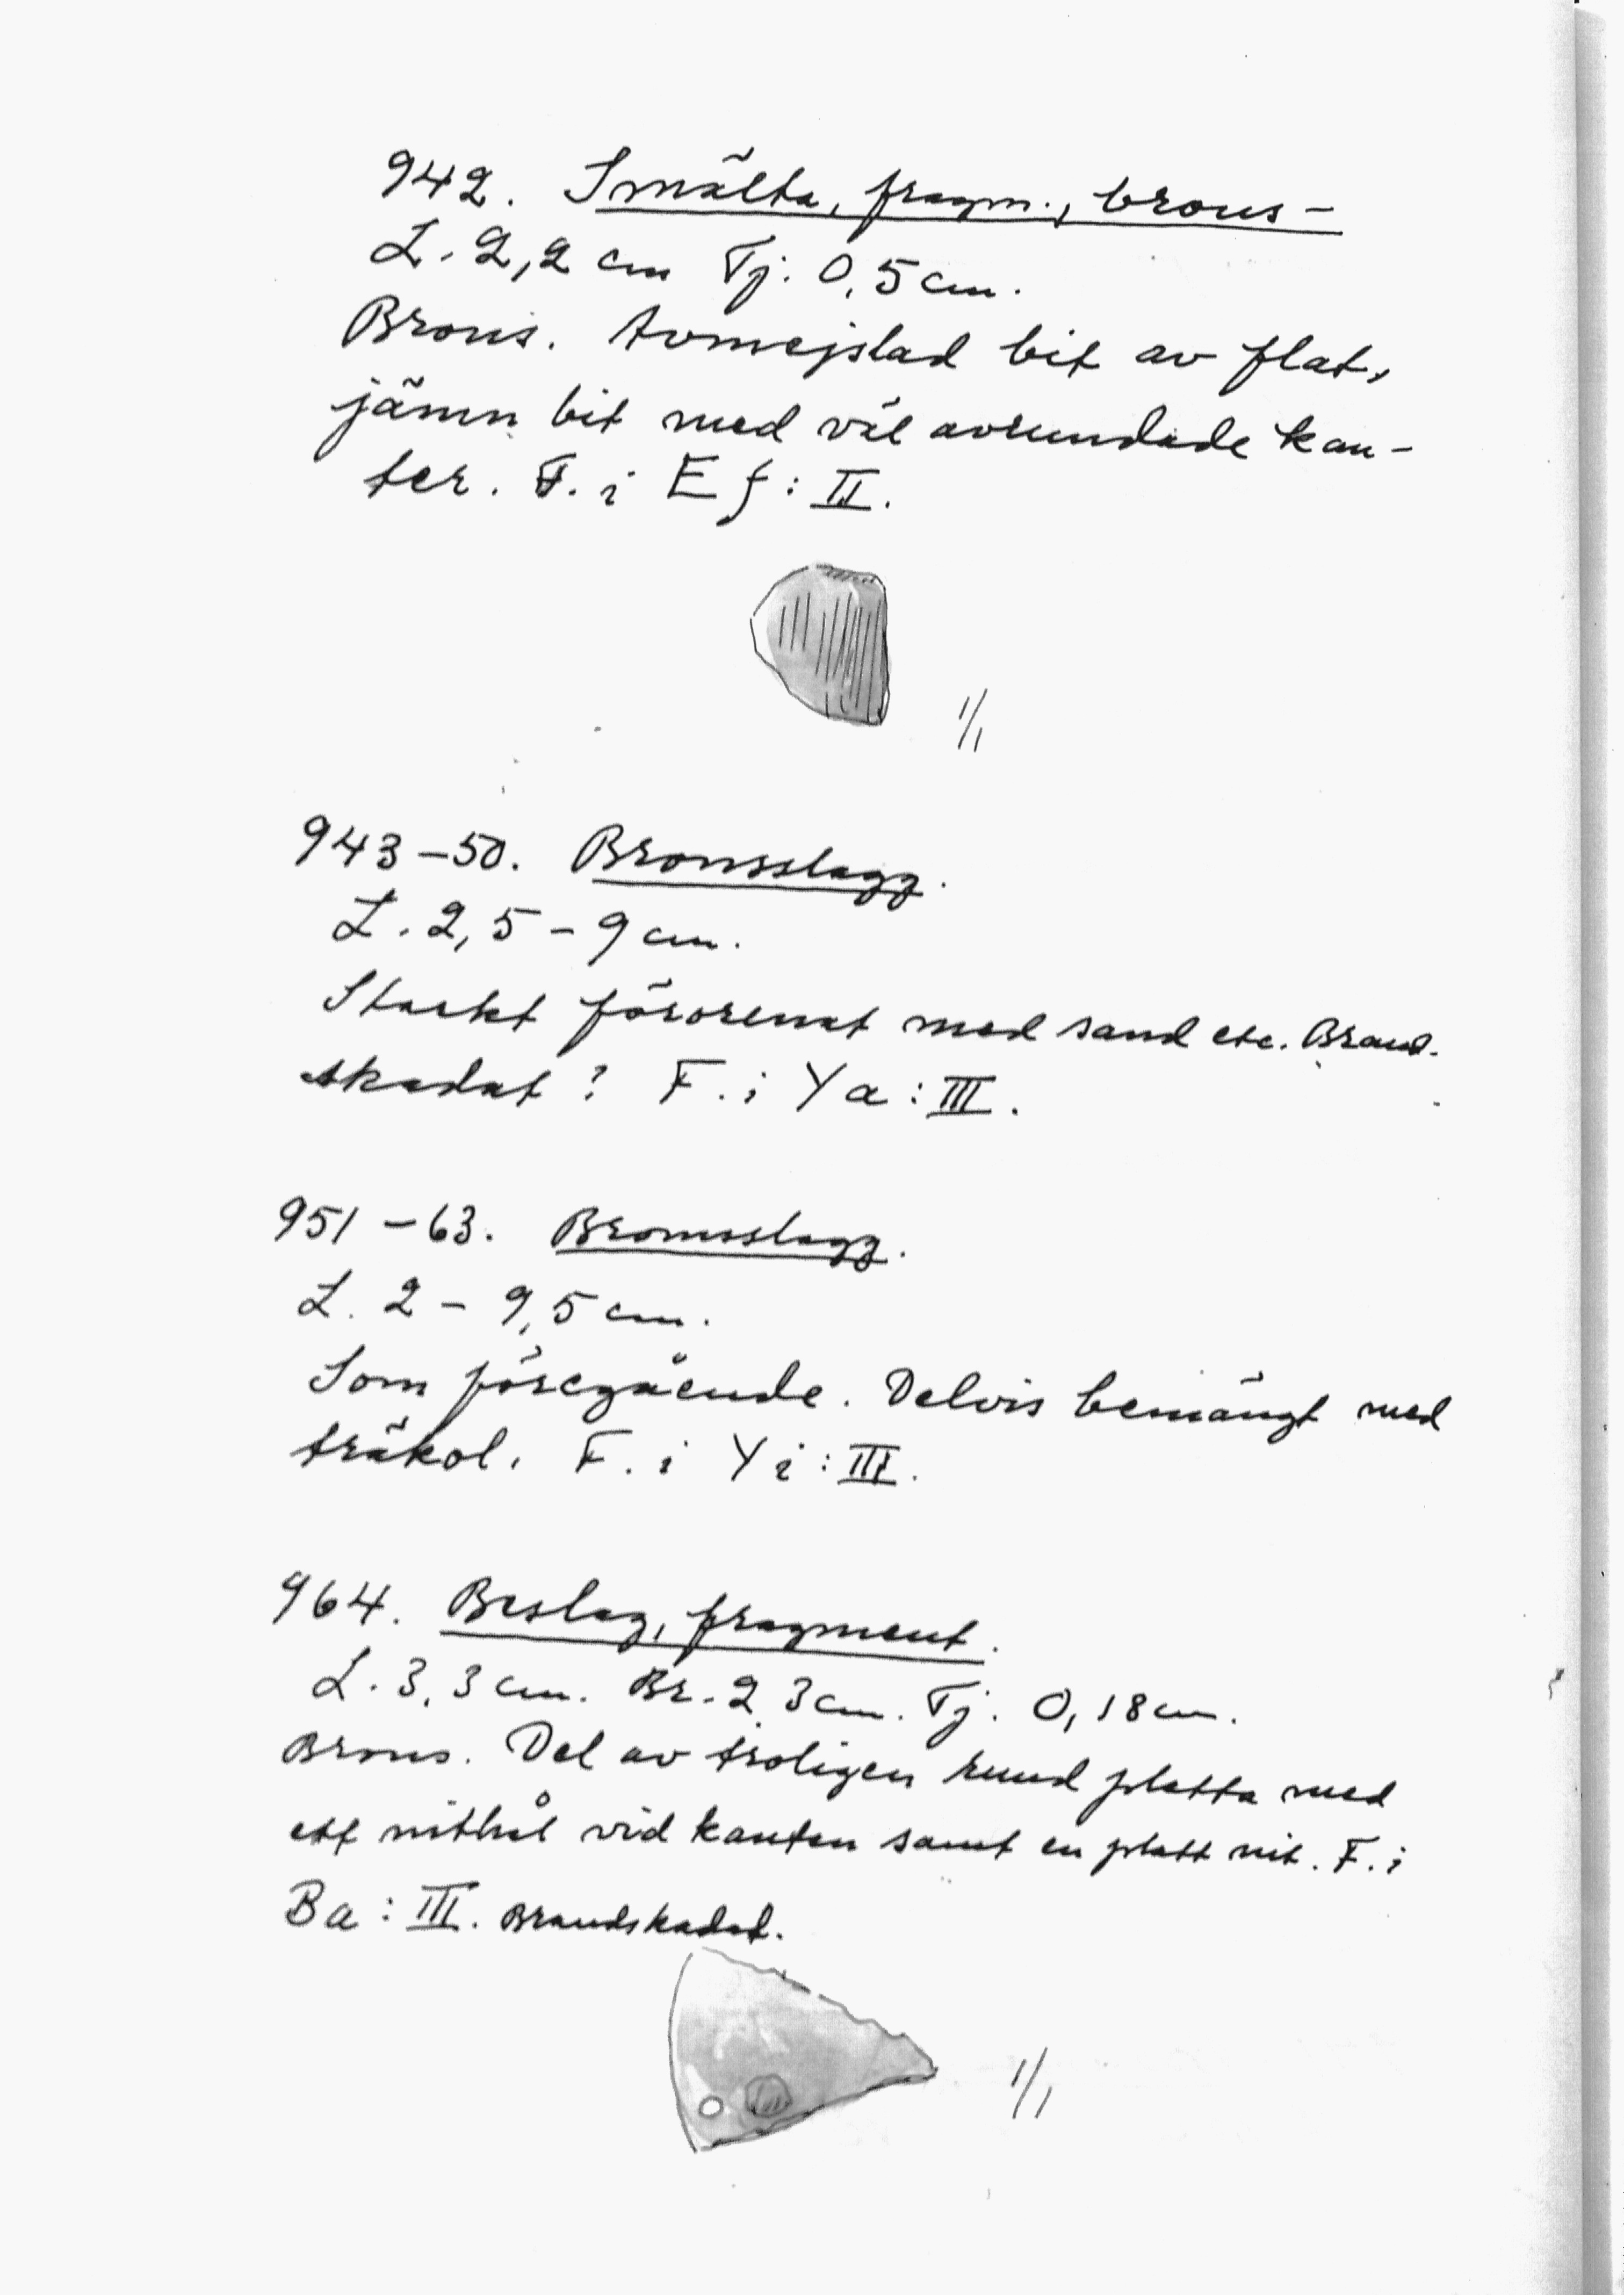 942. Smälta, fragm., brons-
L. 2,2 cm Tj. 0,5 cm.
Brons. Avmejslad bit av flat,
jämn bit med väl avrundade kan-
ter. F. i Ef: II.
1/1
943-50. Bronsslagg.
L. 2,5 - 9 cm.
Starkt förorenat med sand etc. Brand-
skadat? F. i Ya: III.
951-63. Bronsslagg.
L. 2 - 9,5 cm.
Som föregående. Delvis bemängt med
träkol. F. i Yi: III.
964. Beslag, fragment.
L. 3,3 cm. Br. 2,3 cm. Tj. 0,18 cm.
Brons. Del av troligen rund platta med
ett nithål vid kanten samt en platt nit. F. i
Ba: III. Brandskadat.
1/1